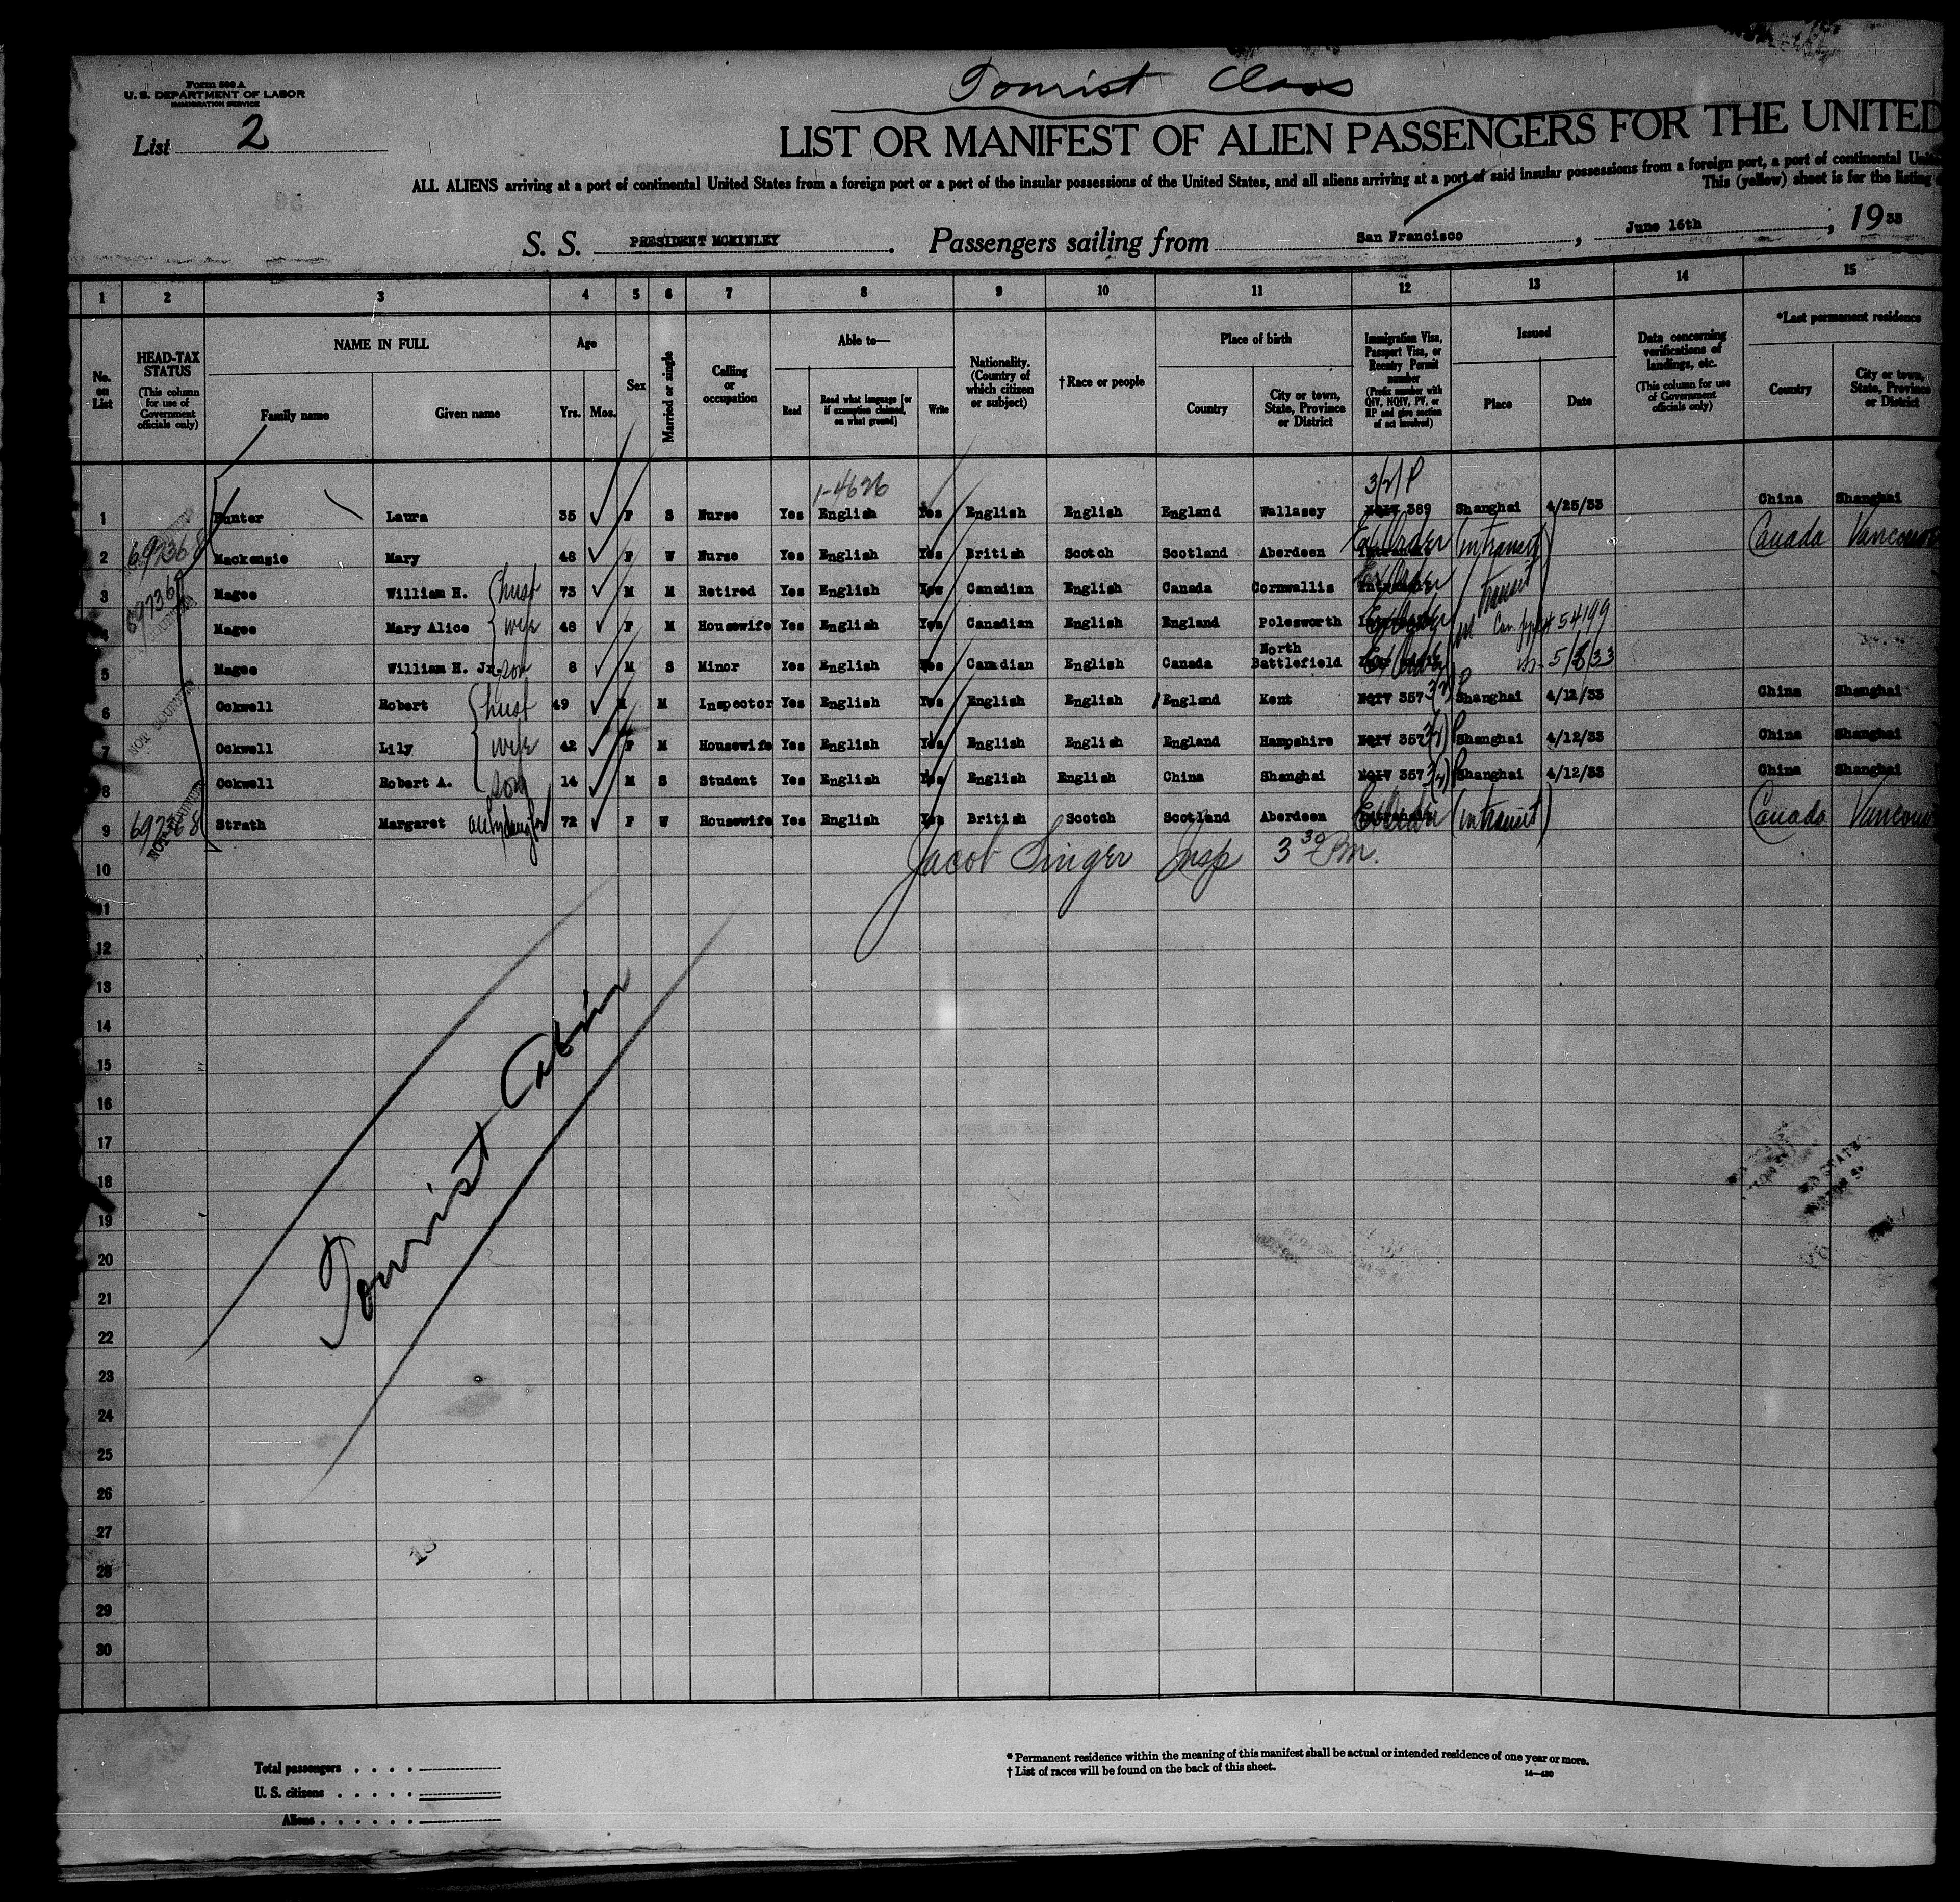 Form 500 A
U. S. DEPARTMENT OF LABOR
IMMIGRATION SERVICE
List 2
Tourist Class
LIST OR MANIFEST OF ALIEN PASSENGERS FOR THE UNITED
ALL ALIENS arriving at a port of continental United States from a foreign port or a port of the insular possessions of the United States, and all aliens arriving at a port of said insular possessions from a foreign port, a port of continental
This (yellow) sheet is for the listing
S. S. PRESIDENT MCKINLEY. Passengers sailing from San Francisco, June 16th, 1933
1 2 3 4 5 6 7 8 9 10 11 12 13 14 15
No. on List
HEAD-TAX STATUS (This column for use of Government officials only)
NAME IN FULL Family name Given name
Age Yrs. Mos.
Sex
Married or single
Calling or occupation
Able to— Read Read what language [or if exemption claimed, on what ground] Write
Nationality. (Country of which citizen or subject)
†Race or people
Place of birth Country City or town, State, Province or District
Immigration Visa, Passport Visa, or Reentry Permit number (Prefix number with QIV, NQIV, PV, or RP and give section of act involved)
Issued Place Date
Data concerning verifications of landings, etc. (This column for use of Government officials only)
*Last permanent residence Country City or town, State, Province or District
1-4626 3(2)P
1 Hunter Laura 35 F S Nurse Yes English Yes English English England Wallasey NQIV 389 Shanghai 4/25/33 China Shanghai
2 69736 Mackensie Mary 48 F W Nurse Yes English Yes British Scotch Scotland Aberdeen Ex Order (in transit) Canada Vancouver
3 69736 Magee William H. husb 73 M M Retired Yes English Yes Canadian English Canada Cornwallis Ex Order transit
4 Magee Mary Alice wife 48 F M Housewife Yes English Yes Canadian English England Polesworth Ex Order Can. ppt # 54199
5 Magee William H. Jr. son 8 M S Minor Yes English Yes Canadian English Canada North Battlefield Ex Order
6 Ockwell Robert husb 49 M M Inspector Yes English Yes English English England Kent NQIV 357 3(2)P Shanghai 4/12/33 China Shanghai
7 Ockwell Lily wife 42 F M Housewife Yes English Yes English English England Hampshire NQIV 357 3(2)P Shanghai 4/12/33 China Shanghai
8 Ockwell Robert A. son 14 M S Student Yes English Yes English English China Shanghai NQIV 357 3(2)P Shanghai 4/12/33 China Shanghai
9 697368 Strath Margaret 72 F W Housewife Yes English Yes British Scotch Scotland Aberdeen Ex Order (in transit) Canada Vancouver
NOT
10 Jacob Singer Insp 3 30 Pm.
11
12
13
14
15
16
17
18
19
20
21
22
23
24
25
26
27
28
29
30
Tourist Cabin
13
Total passengers
U. S. citizens
Aliens
* Permanent residence within the meaning of this manifest shall be actual or intended residence of one year or more.
† List of races will be found on the back of this sheet.